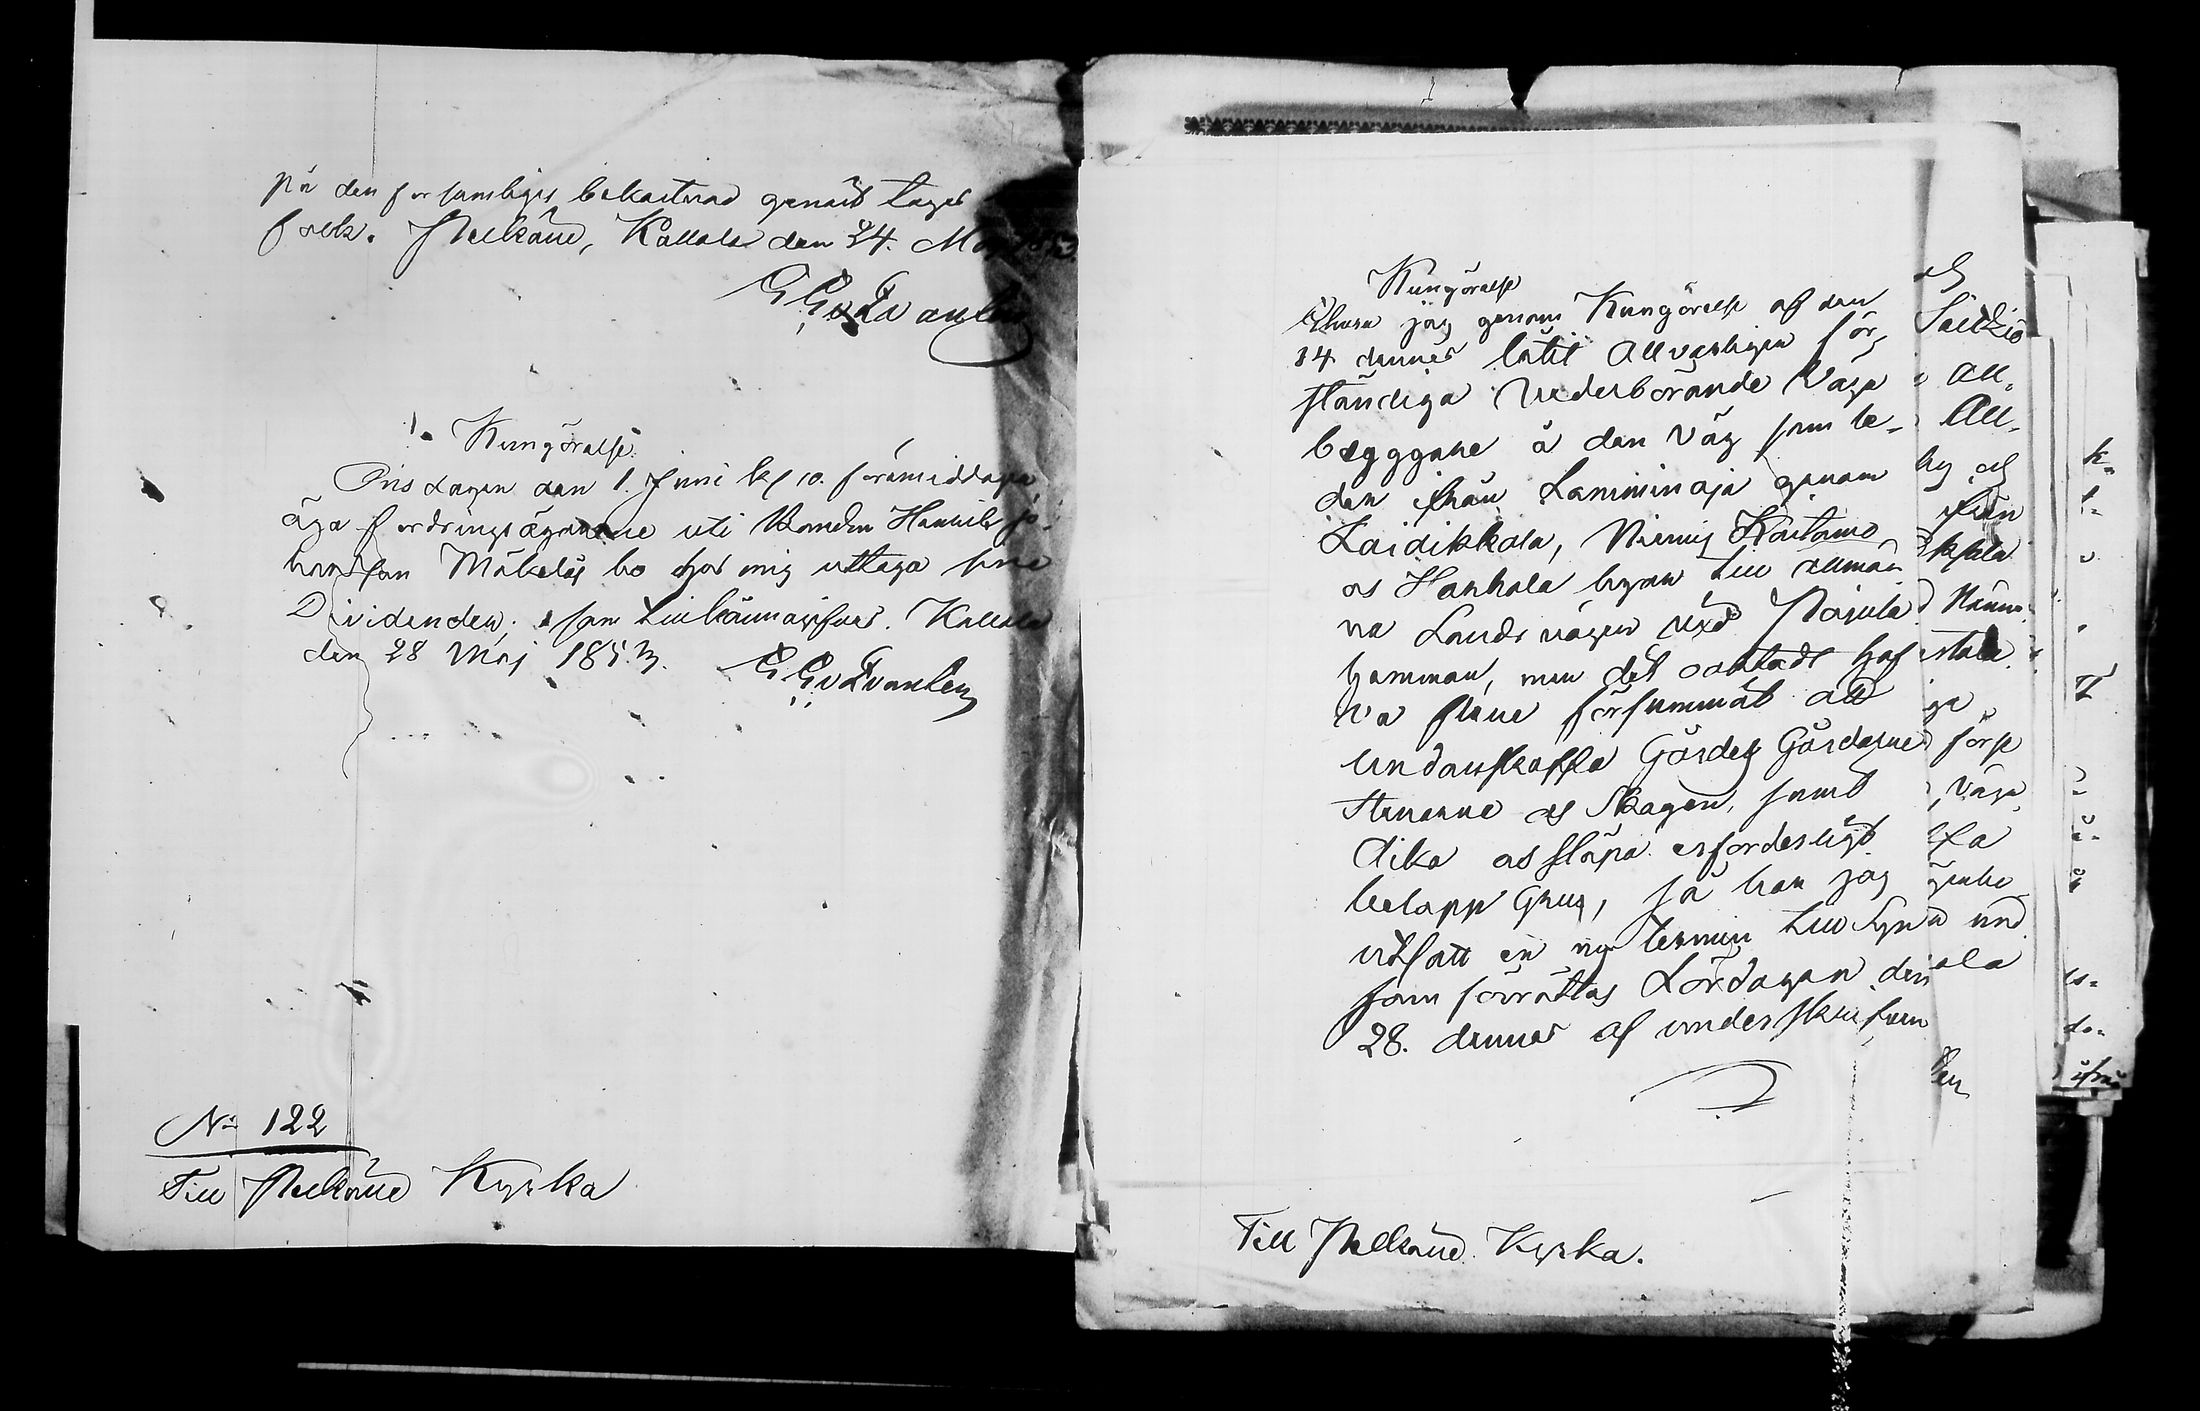 på den försumliges bekostnad genast tages
folk. Pelkäne, Kallala den 24. Maj 1853.
G Gv Qvanten
1. Kungörelse
Onsdagen den 1. Juni kl 10. förmiddagen
äga fordringsägarene uti Bonden Henrik Jo-
hansson Mäkeläs bo hos mig uttaga sine
Dividender, som tillkännagifves. Kallala
den 28 Maj 1853.
G Gv Qvanten
No 122
Till Pelkäne Kyrka
Kungörelse
Ehuru jag genom Kungörelse af den
14 dennes låtit Allvarligen för-
ständiga Vederbörande Väga
byggare å den väg som le-
der ifrån Lamminoja genom
Laidikkala, Niemis Kaitamo
os Hanhala byar till allmän
na Landsvägen vid Pajula
hamman, men det oaktadt haf
va flere försummat att
undanskaffa Gärdes Gårdarne
Stenarne os Skogen, samt
dika os släpa erforderligt
belopp Grus, så har jag
utsatt en ny termin till syn
som förrättas Lördagen den
28. dennes af underskrefven
Till Pelkäne Kyrka.
All-
All-
från
ga
förse
Väga
und
ala